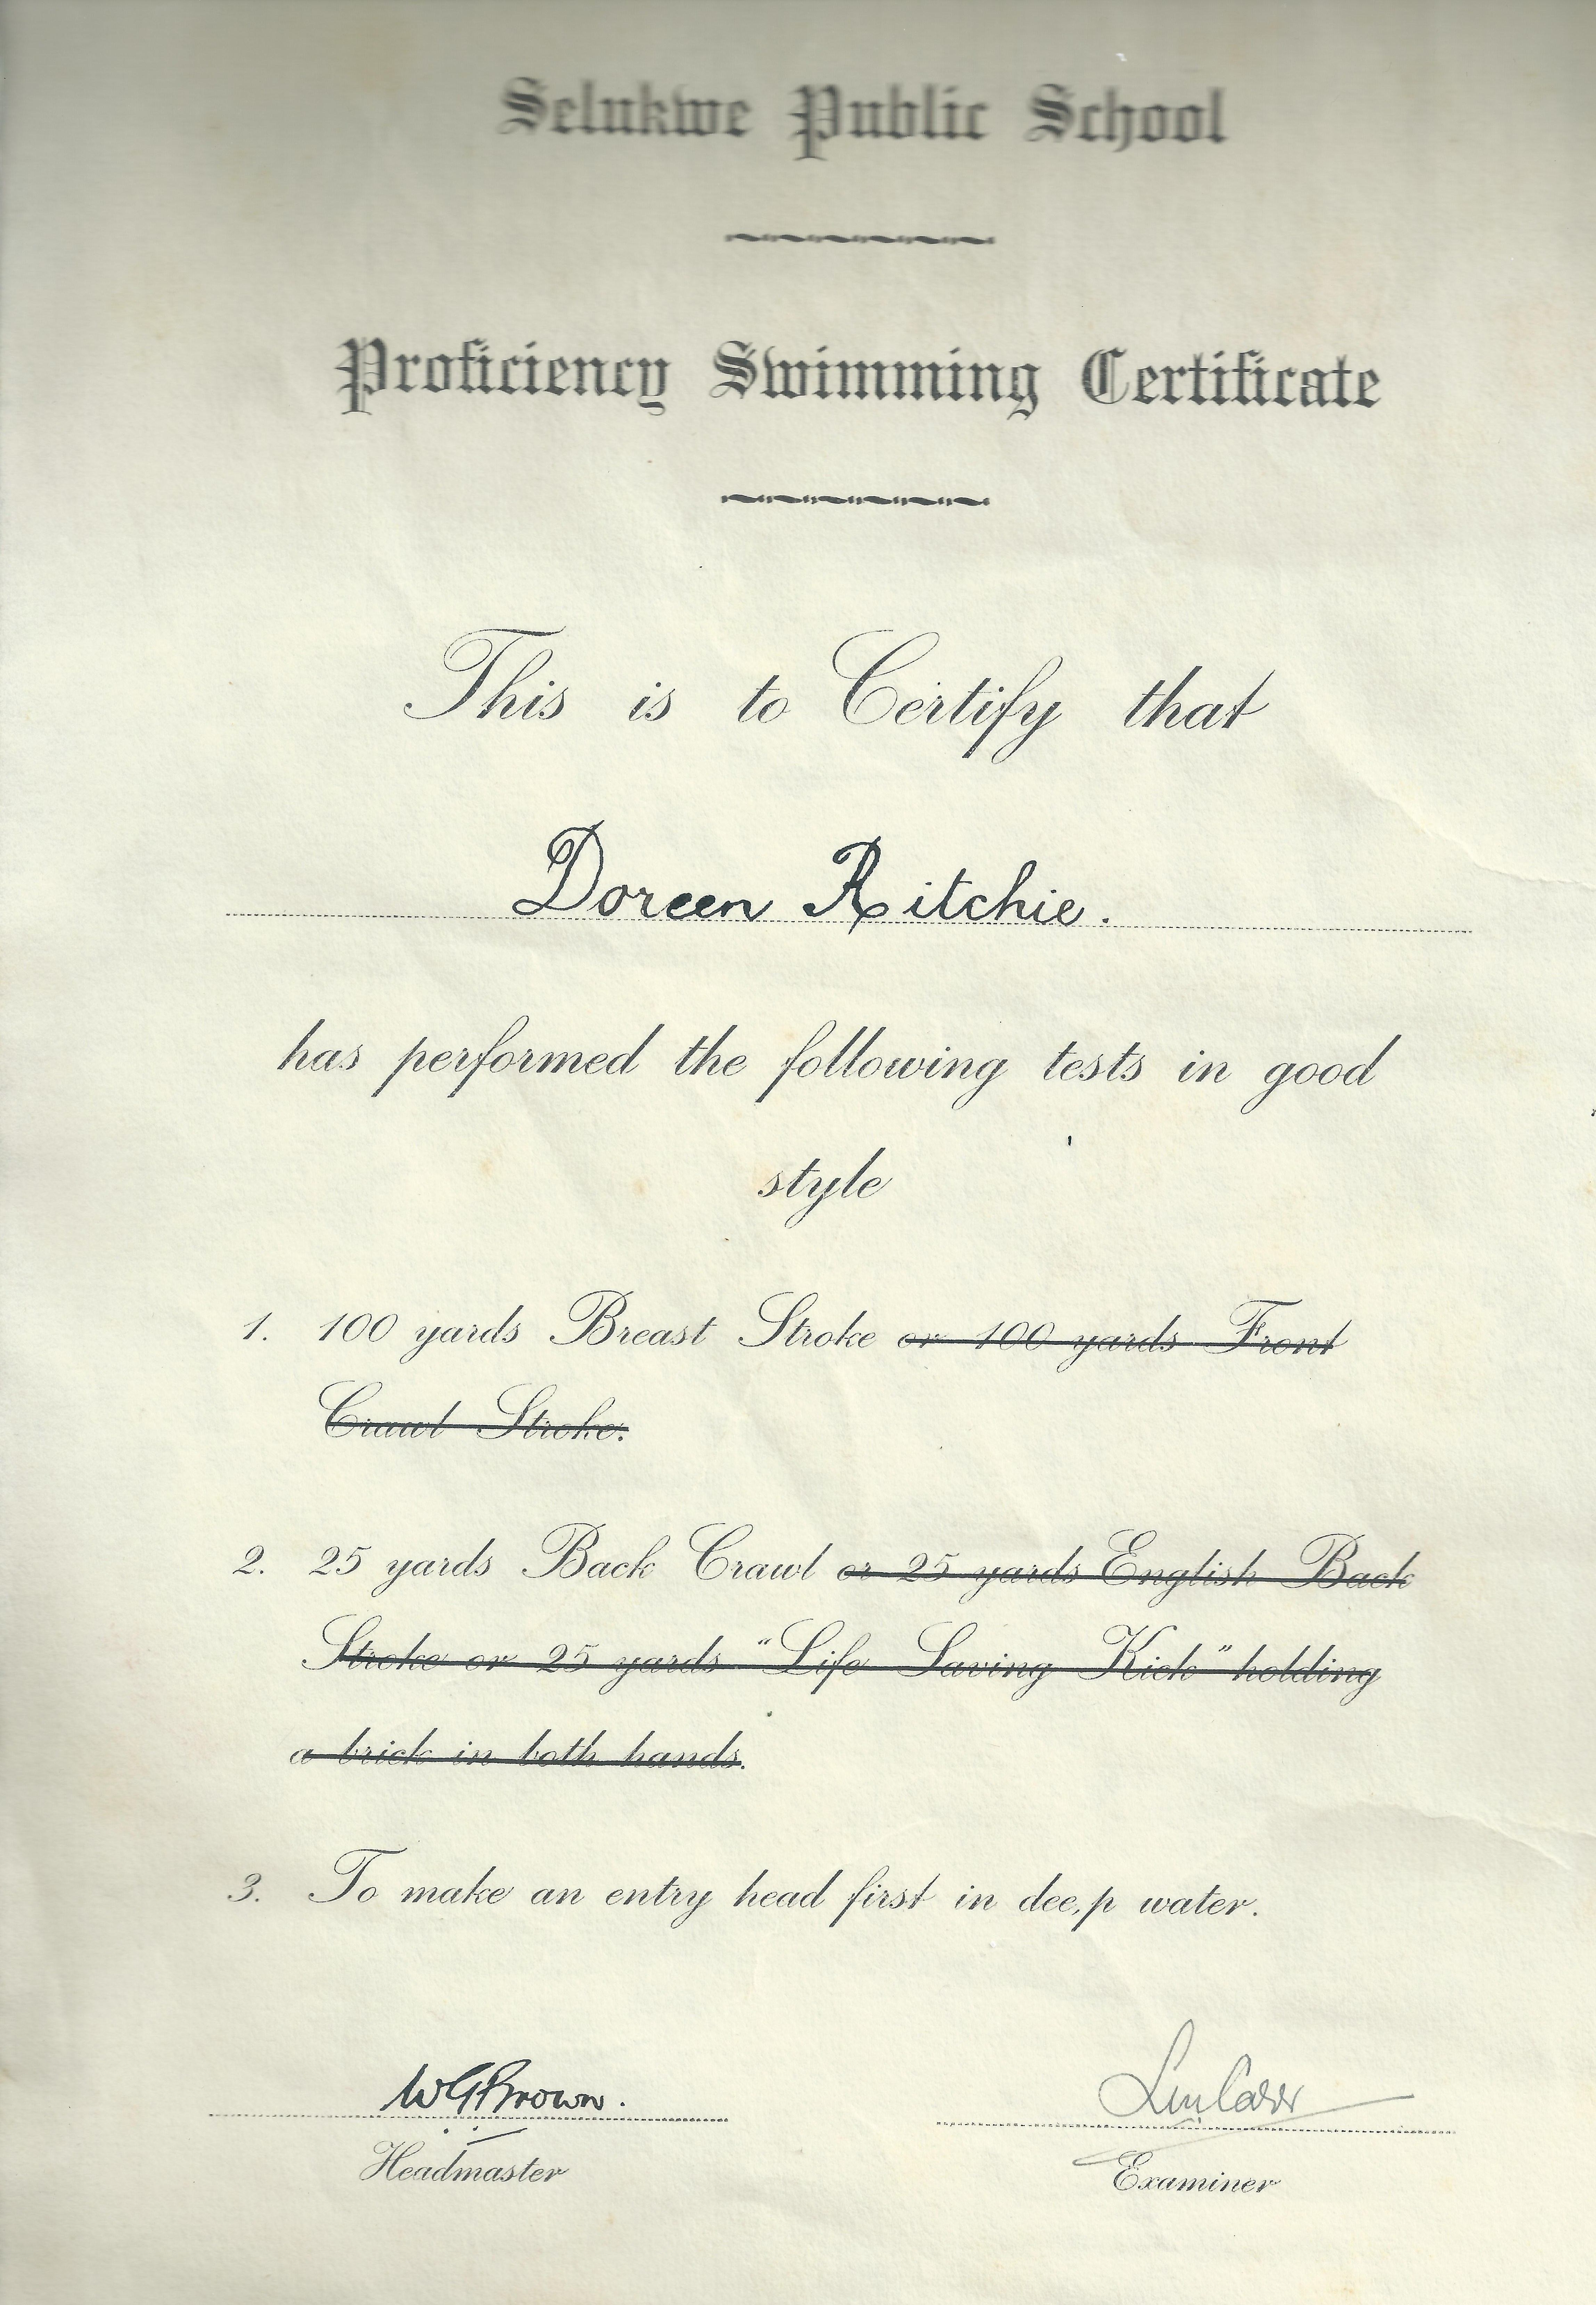 Selukwe Public School
Proficiency Swimming Certificate
This is to Certify that
Doreen Ritchie.
has performed the following tests in good
style
1. 100 yards Breast Stroke or 100 yards Front
Crawl Stroke.
2. 25 yards Back Crawl or 25 yards English Back
Stroke or 25 yards "Life Saving Kick" holding
a brick in both hands.
3. To make an entry head first in dee,p water.
WGBrown.
Headmaster
Examiner